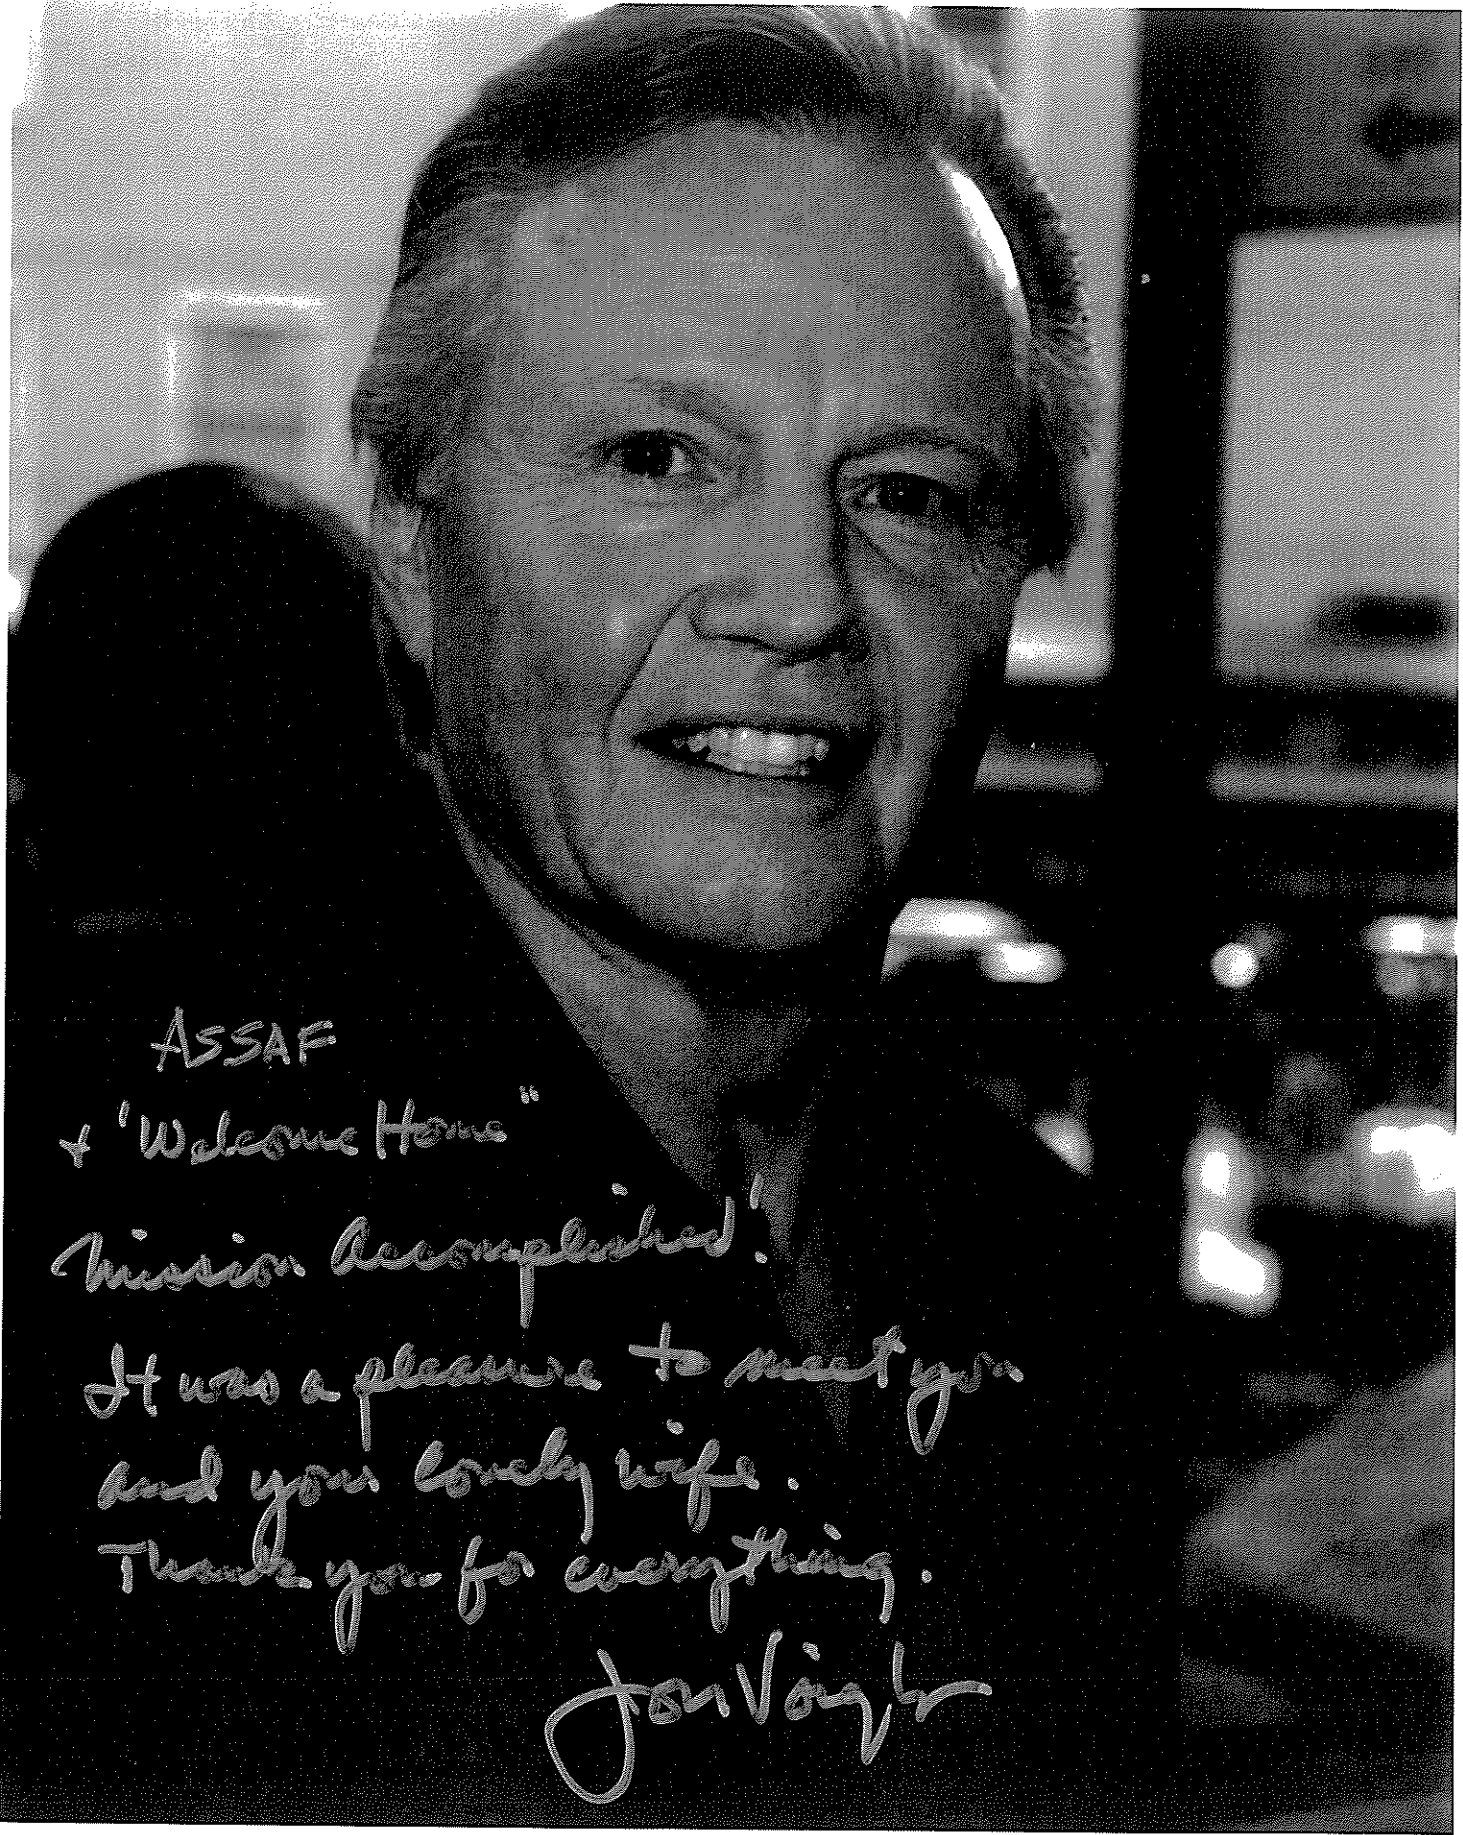 ASSAF
+ 'Welcome Home"
Mission Accomplished!
It was a pleasure to meet you
and your lovely wife.
Thank you for everything.
Jon Voight